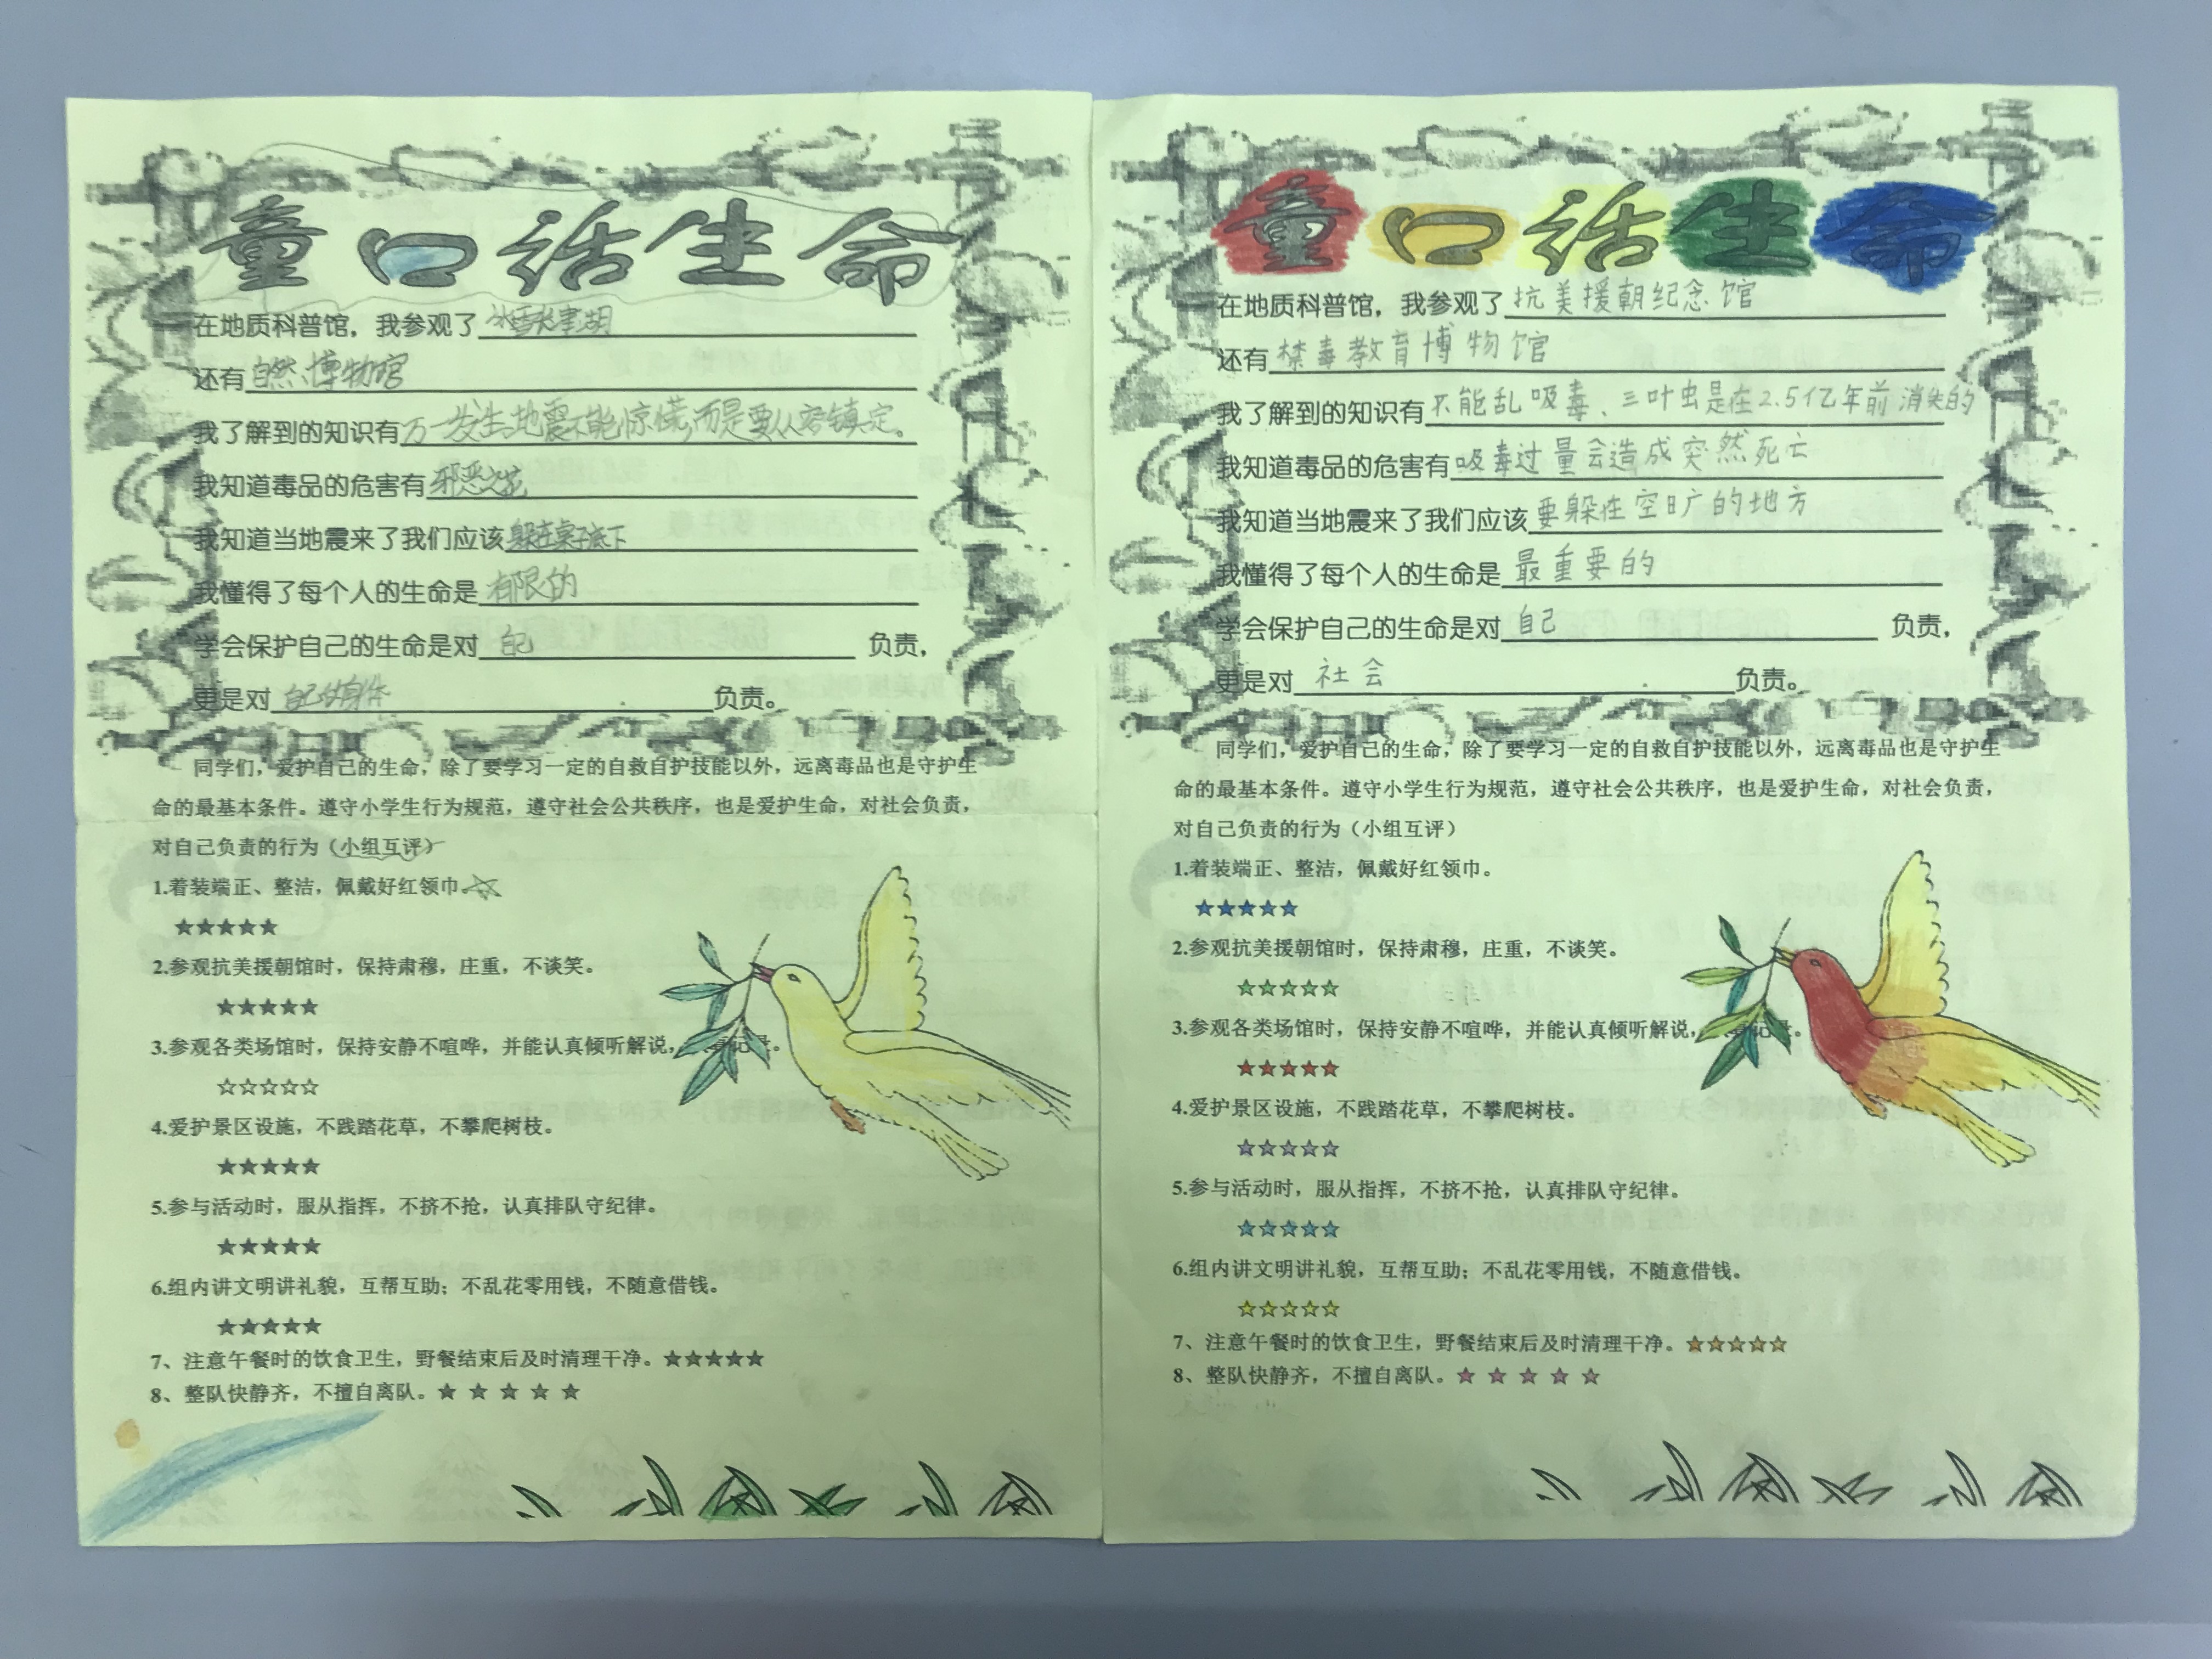 童口话生命
在地质科普馆，我参观了冰雪长津湖
还有自然博物馆
我了解到的知识有万一发生地震不能惊慌,而是要从容镇定。
我知道毒品的危害有邪恶之花
我知道当地震来了我们应该躲在桌子底下
我懂得了每个人的生命是有限的
学会保护自己的生命是对自己负责，
更是对自己的身体负责。
同学们，爱护自己的生命，除了要学习一定的自救自护技能以外，远离毒品也是守护生
命的最基本条件。遵守小学生行为规范，遵守社会公共秩序，也是爱护生命，对社会负责，
对自己负责的行为（小组互评）
1.着装端正、整洁，佩戴好红领巾。☆
★★★★★
2.参观抗美援朝馆时，保持肃穆，庄重，不谈笑。
★★★★★
3.参观各类场馆时，保持安静不喧哗，并能认真倾听解说，记录。
☆☆☆☆☆
4.爱护景区设施，不践踏花草，不攀爬树枝。
★★★★★
5.参与活动时，服从指挥，不挤不抢，认真排队守纪律。
★★★★★
6.组内讲文明讲礼貌，互帮互助；不乱花零用钱，不随意借钱。
★★★★★
7、注意午餐时的饮食卫生，野餐结束后及时清理干净。★★★★★
8、整队快静齐，不擅自离队。★ ★ ★ ★ ★
童口话生命
在地质科普馆，我参观了抗美援朝纪念馆
还有禁毒教育博物馆
我了解到的知识有不能乱吸毒、三叶虫是在2.5亿年前消失的
我知道毒品的危害有吸毒过量会造成突然死亡
我知道当地震来了我们应该要躲在空旷的地方
我懂得了每个人的生命是最重要的
学会保护自己的生命是对自己负责，
更是对社会负责。
同学们，爱护自己的生命，除了要学习一定的自救自护技能以外，远离毒品也是守护生
命的最基本条件。遵守小学生行为规范，遵守社会公共秩序，也是爱护生命，对社会负责，
对自己负责的行为（小组互评）
1.着装端正、整洁，佩戴好红领巾。
★★★★★
2.参观抗美援朝馆时，保持肃穆，庄重，不谈笑。
☆☆☆☆☆
3.参观各类场馆时，保持安静不喧哗，并能认真倾听解说，记录。
★★★★★
4.爱护景区设施，不践踏花草，不攀爬树枝。
☆☆☆☆☆
5.参与活动时，服从指挥，不挤不抢，认真排队守纪律。
☆☆☆☆☆
6.组内讲文明讲礼貌，互帮互助；不乱花零用钱，不随意借钱。
☆☆☆☆☆
7、注意午餐时的饮食卫生，野餐结束后及时清理干净。☆☆☆☆☆
8、整队快静齐，不擅自离队。★ ★ ★ ★ ★